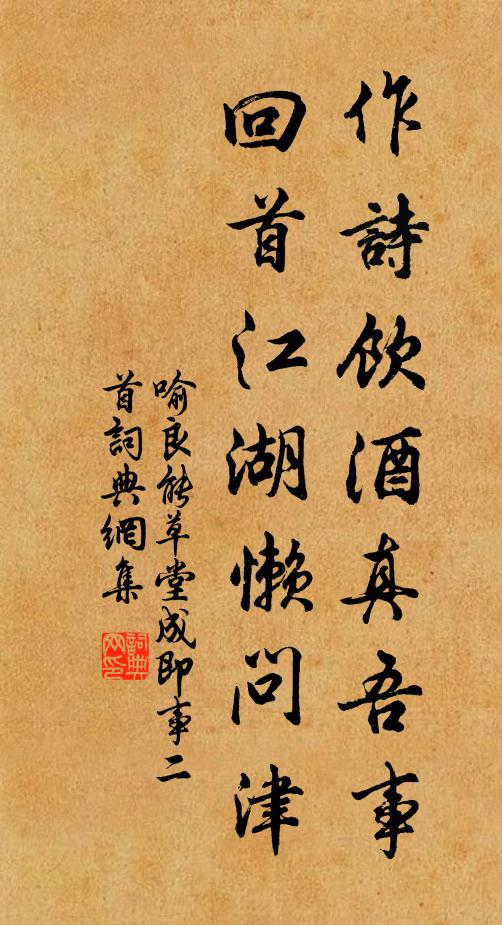 作詩飲酒真吾事
回首江湖懒問津
喻良能草堂成即事二
首詞典網集
詞典
网印